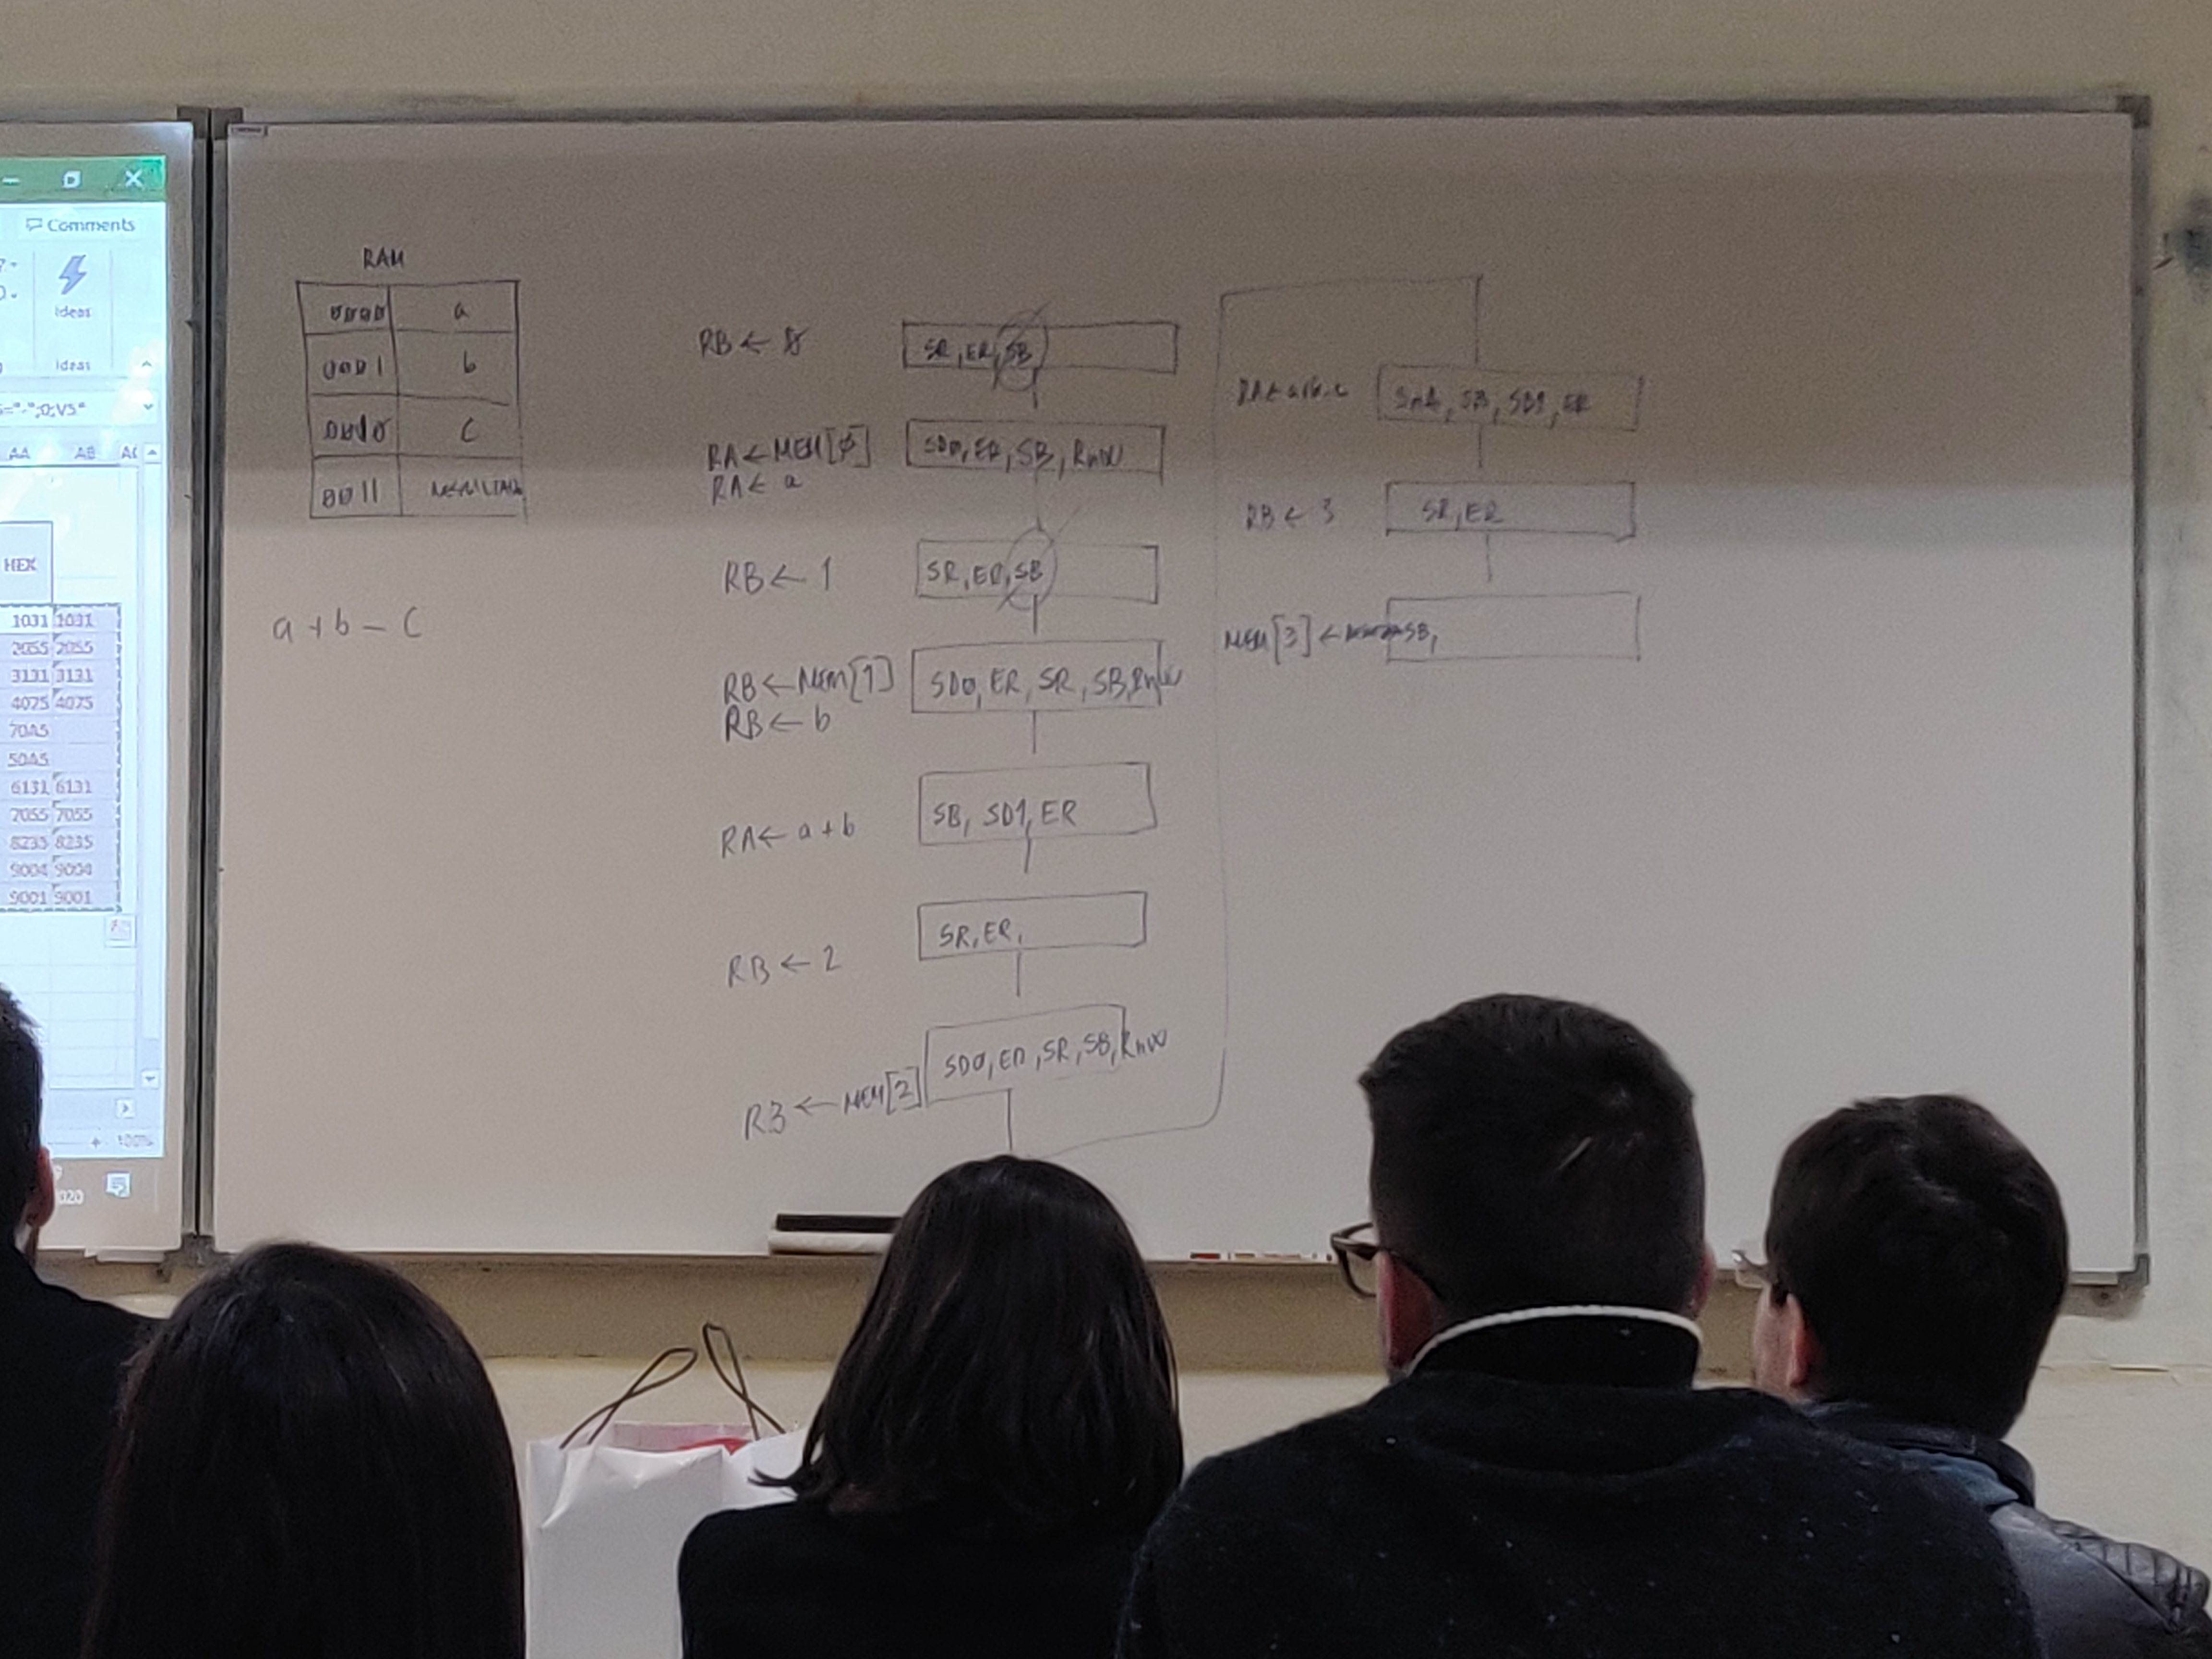 Comments
Ideas
Ideas
AA AB
HEX
1031 1031
2055 2055
3131 3131
4075 4075
70A5
50A5
6131 6131
7055 7055
8235 8235
9004 9004
9001 9001
100%
RAM
0000 a
0001 b
0010 c
0011
a + b - c
RB ← 0
SR, ER, SB
RA ← MEM[0]
RA ← a
SD0, ER, SB, RnW
RB ← 1
SR, ER, SB
RB ← MEM[1]
RB ← b
SD0, ER, SR, SB, RnW
RA ← a + b
SB, SD1, ER
RB ← 2
SR, ER,
RB ← MEM[2]
SD0, ER, SR, SB, RnW
RA ← a+b-c
SnA, SB, SD1, ER
RB ← 3
SR, ER
MEM[3] ←
SB,